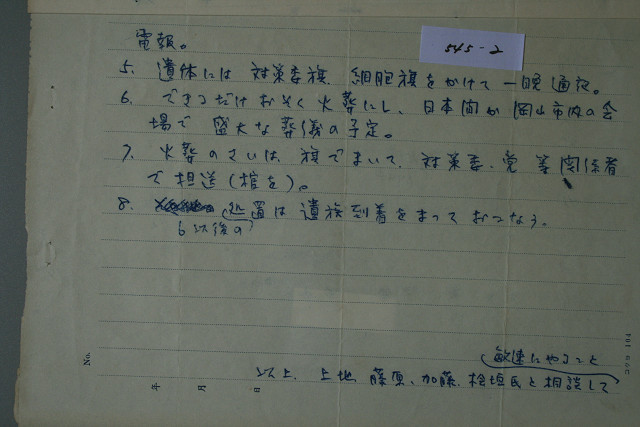 545-2
電報。
5. 遺体には 対策委旗、細胞旗をかけて一晩通夜。
6. できるだけおそく火葬にし、日本原か岡山市内の会
場で 盛大な葬儀の予定。
7. 火葬のさいは、旗でまいて、対策委、党等関係者
で担送(棺を)。
8. 処置は遺族到着をまっておこなう。
6以後の
敏速にやること
以上、上地、藤原、加藤、桧垣氏と相談して
No.
年 月 日
コクヨ